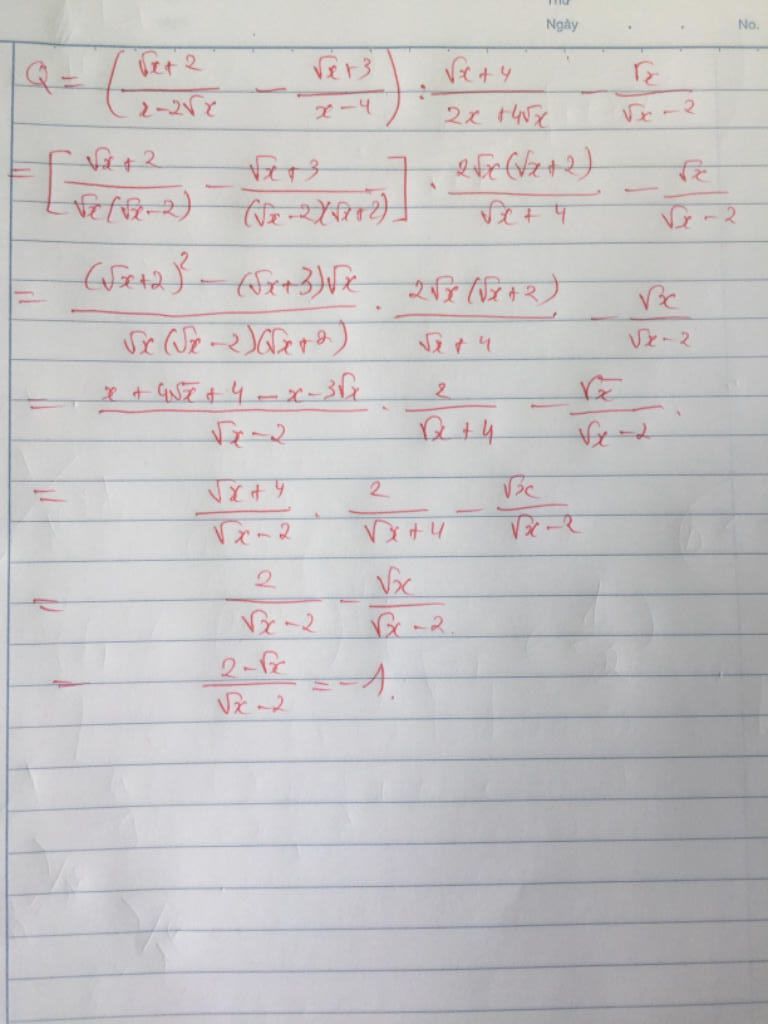 Thứ
Ngày . . No.
Q = ( (√x+2)/(x-2√x) - (√x+3)/(x-4) ) : (√x+4)/(2x+4√x) - √x/(√x-2)
= [ (√x+2)/(√x(√x-2)) - (√x+3)/((√x-2)(√x+2)) ] . (2√x(√x+2))/(√x+4) - √x/(√x-2)
= ((√x+2)² - (√x+3)√x)/(√x(√x-2)(√x+2)) . (2√x(√x+2))/(√x+4) - √x/(√x-2)
= (x+4√x+4-x-3√x)/(√x-2) . 2/(√x+4) - √x/(√x-2).
= (√x+4)/(√x-2) . 2/(√x+4) - √x/(√x-2)
= 2/(√x-2) - √x/(√x-2).
- (2-√x)/(√x-2) = -1.